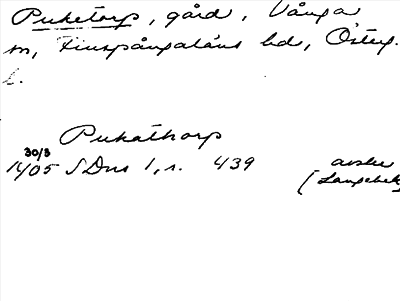 Puketorp, gård, Vånga
sn, Finspångaläns hd, Östg.
l.
Pukathorp
30/3
1405 SDns 1, s. 439 avskr
(Langebek